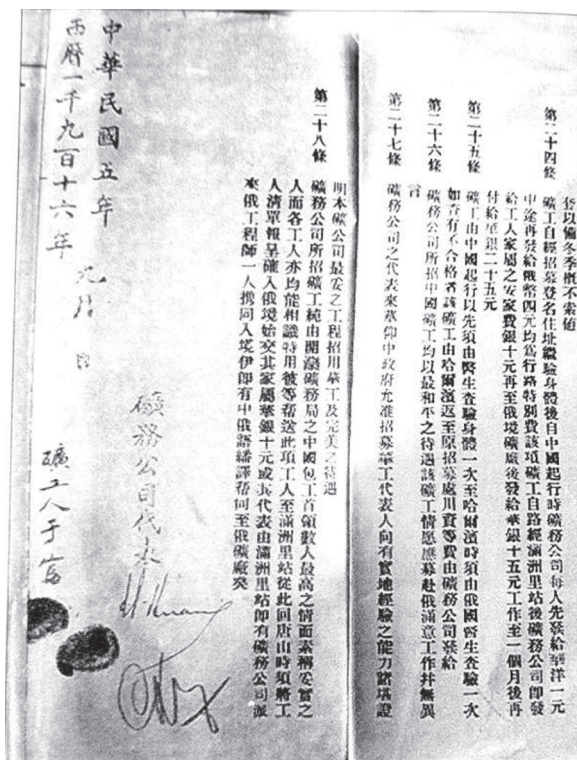 套以備冬季概不索值
第二十四條 礦工自經招募登名住址繼驗身體後自中國起行時礦務公司每人先發給華洋一元
中途再發給俄幣四元均爲行路特別費該項礦工自路經滿洲里站後礦務公司即發
給工人家屬之安家費銀十元再至俄境礦廠後發給華銀十五元工作至一個月後再
付給華銀二十五元
第二十五條 礦工由中國起行以先須由醫生查驗身體一次至哈爾濱時須由俄國醫生查驗一次
如查有不合格者該礦工由哈爾濱返至原招募處川資等費由礦務公司發給
第二十六條 礦務公司所招中國礦工均以最和平之待遇該礦工情愿應募赴俄滿意工作并無異
言
第二十七條 礦務公司之代表來華仰中政府允准招募華工代表人向有實地經驗之能力諸堪證
明本礦公司最妥之工程招用華工及完美之待遇
第二十八條 礦務公司所招礦工純由開灤礦務局之中國包工首領數人最高之情面素稱妥實之
人而各工人亦均能相識特用彼等帮送此項工人至滿洲里站從此回唐山時須將工
人清單報呈確入俄境始交其家屬華銀十元或其代表由滿洲里站即有礦務公司派
來俄工程師一人攜同入境伊即有中俄語繙譯帮同至俄礦廠爽
礦務公司代表
礦工人于富
中華民國五年
西曆一千九百十六年 元月 日